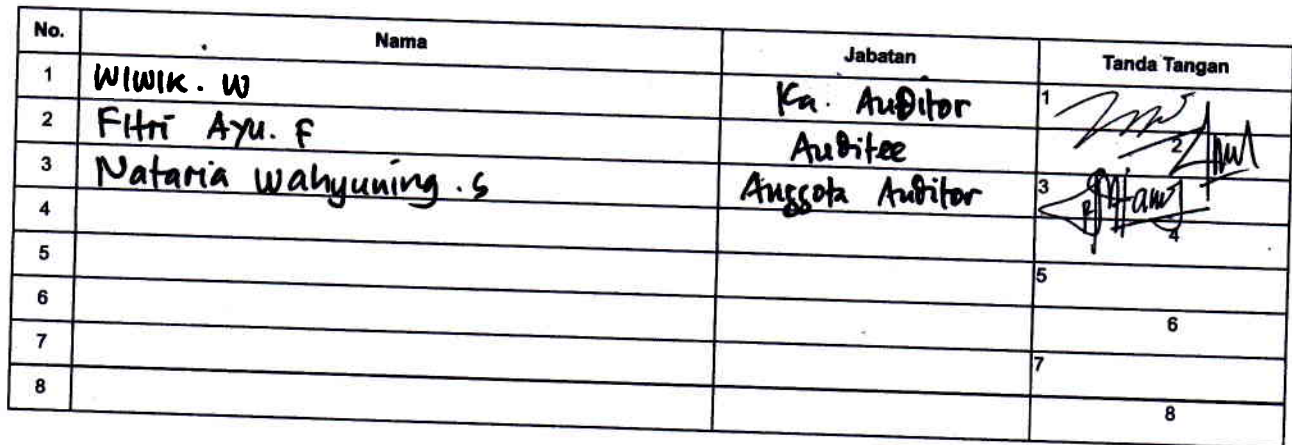 No. Nama Jabatan Tanda Tangan
1 WIWIK. W Ka. Auditor 1
2 Fitri Ayu. F Auditee 2
3 Nataria Wahyuning. S Anggota Auditor 3
4 4
5 5
6 6
7 7
8 8